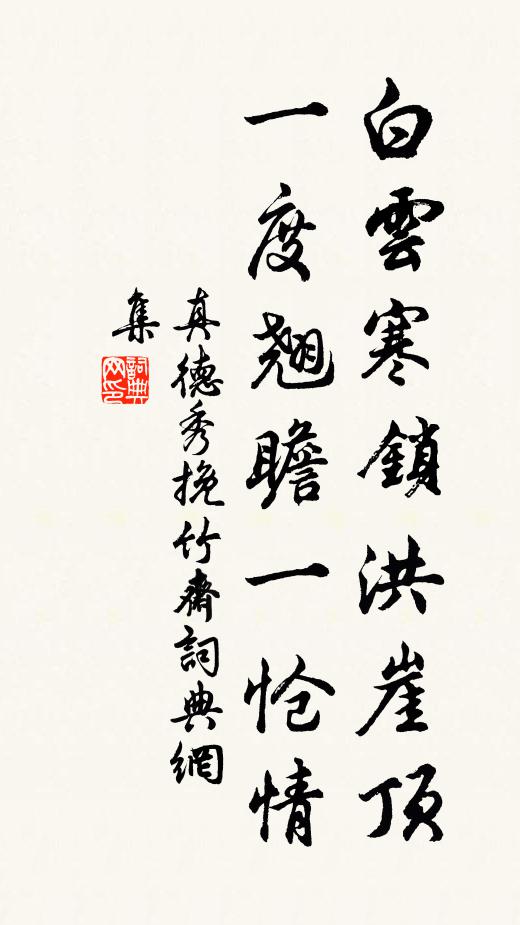 白雲寒鎖洪崖頂
一度翹瞻一愴情
真德秀挽竹齋詞典網
集
詞典網印